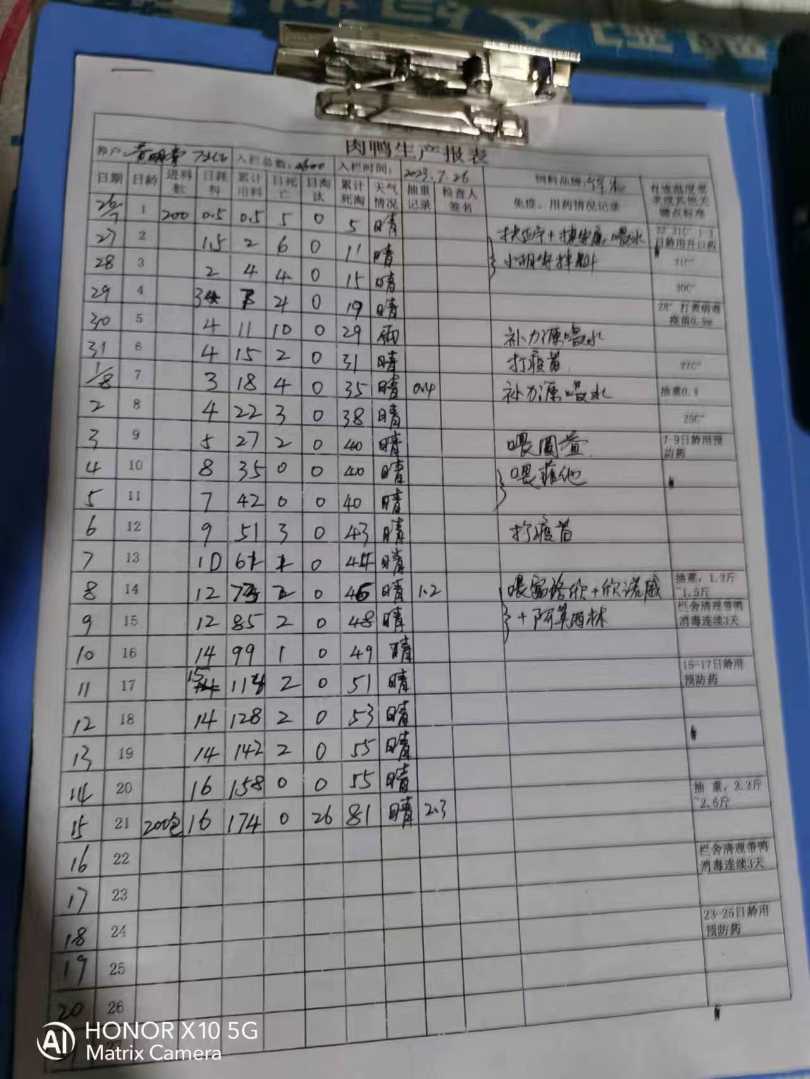 肉鸭生产报表
养户: 入栏总数: 入栏时间: 2023.7.26 饲料品牌:
日期 日龄 进料数 日耗料 累计用料 日死亡 日淘汰 累计死淘 天气情况 抽重记录 检查人签名 免疫、用药情况记录
26/7 1 200 0.5 0.5 5 0 5 晴
27 2 1.5 2 6 0 11 晴 喂水
28 3 2 4 4 0 15 晴 拌料 31C°
29 4 3 7 4 0 19 晴 30C°
30 5 4 11 10 0 29 雨 补力源喂水 28°
31 6 4 15 2 0 31 晴 打疫苗 27C°
1/8 7 3 18 4 0 35 晴 0.4 补力源喂水
2 8 4 22 3 0 38 晴 25C°
3 9 5 27 2 0 40 晴 7-9日龄用预防药
4 10 8 35 0 0 40 晴
5 11 7 42 0 0 40 晴
6 12 9 51 3 0 43 晴 打疫苗
7 13 10 61 1 0 44 晴
8 14 12 73 2 0 46 晴 1.2
9 15 12 85 2 0 48 晴 +阿莫西林 栏舍清理带鸭消毒连续3天
10 16 14 99 1 0 49 晴
11 17 15 2 0 51 晴 15-17日龄用预防药
12 18 14 128 2 0 53 晴
13 19 14 142 2 0 55 晴
14 20 16 158 0 0 55 晴
15 21 200包 16 174 0 26 81 晴 2.3
16 22 栏舍清理带鸭消毒连续3天
17 23
18 24 23-25日龄用预防药
19 25
20 26
HONOR X10 5G
Matrix Camera